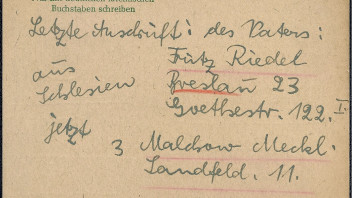 Buchstaben schreiben
Letzte Anschrift: des Vaters:
Fritz Riedel
aus Breslau 23
Schlesien Goethestr. 122. I.
jetzt 3 Malchow Meckl.
Landfeld. 11.